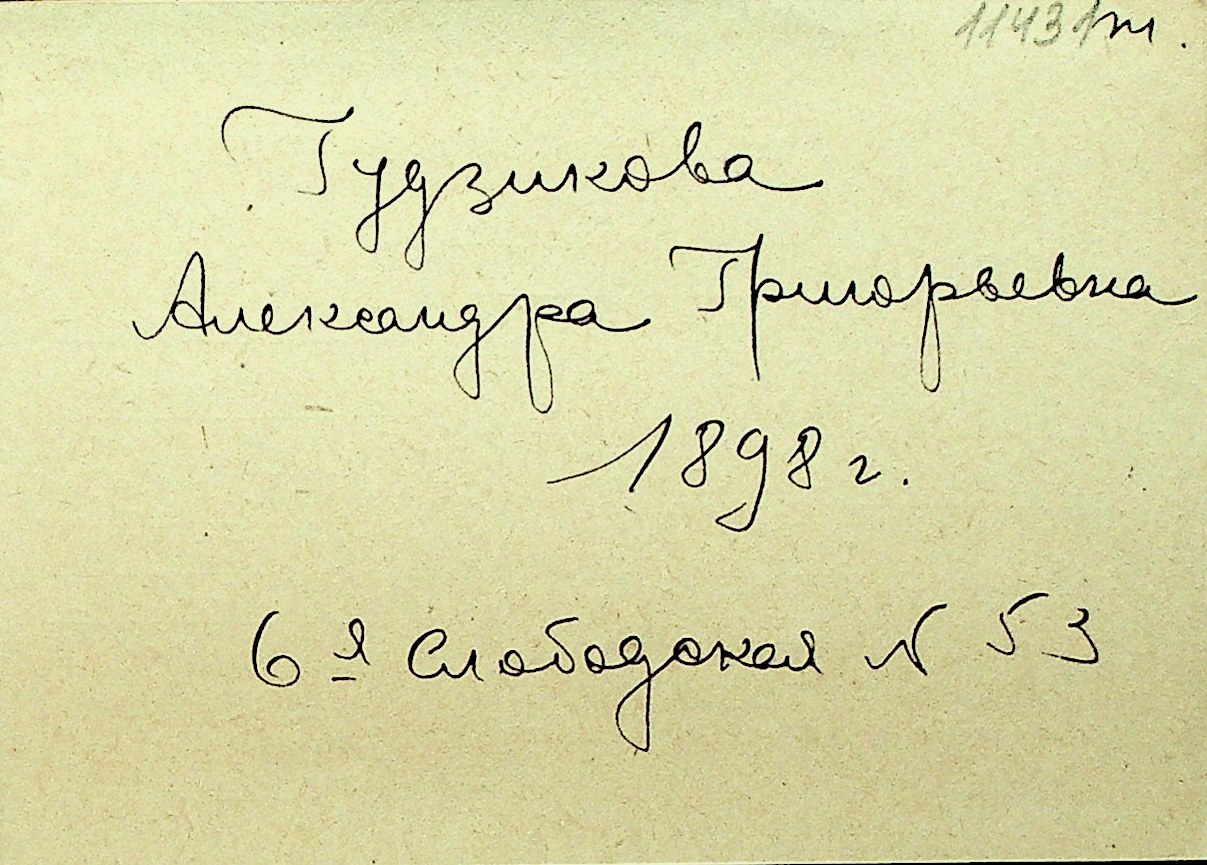 11431 т.
Гудзикова
Александра Григорьевна
1898 г.
6я Слободская N 53